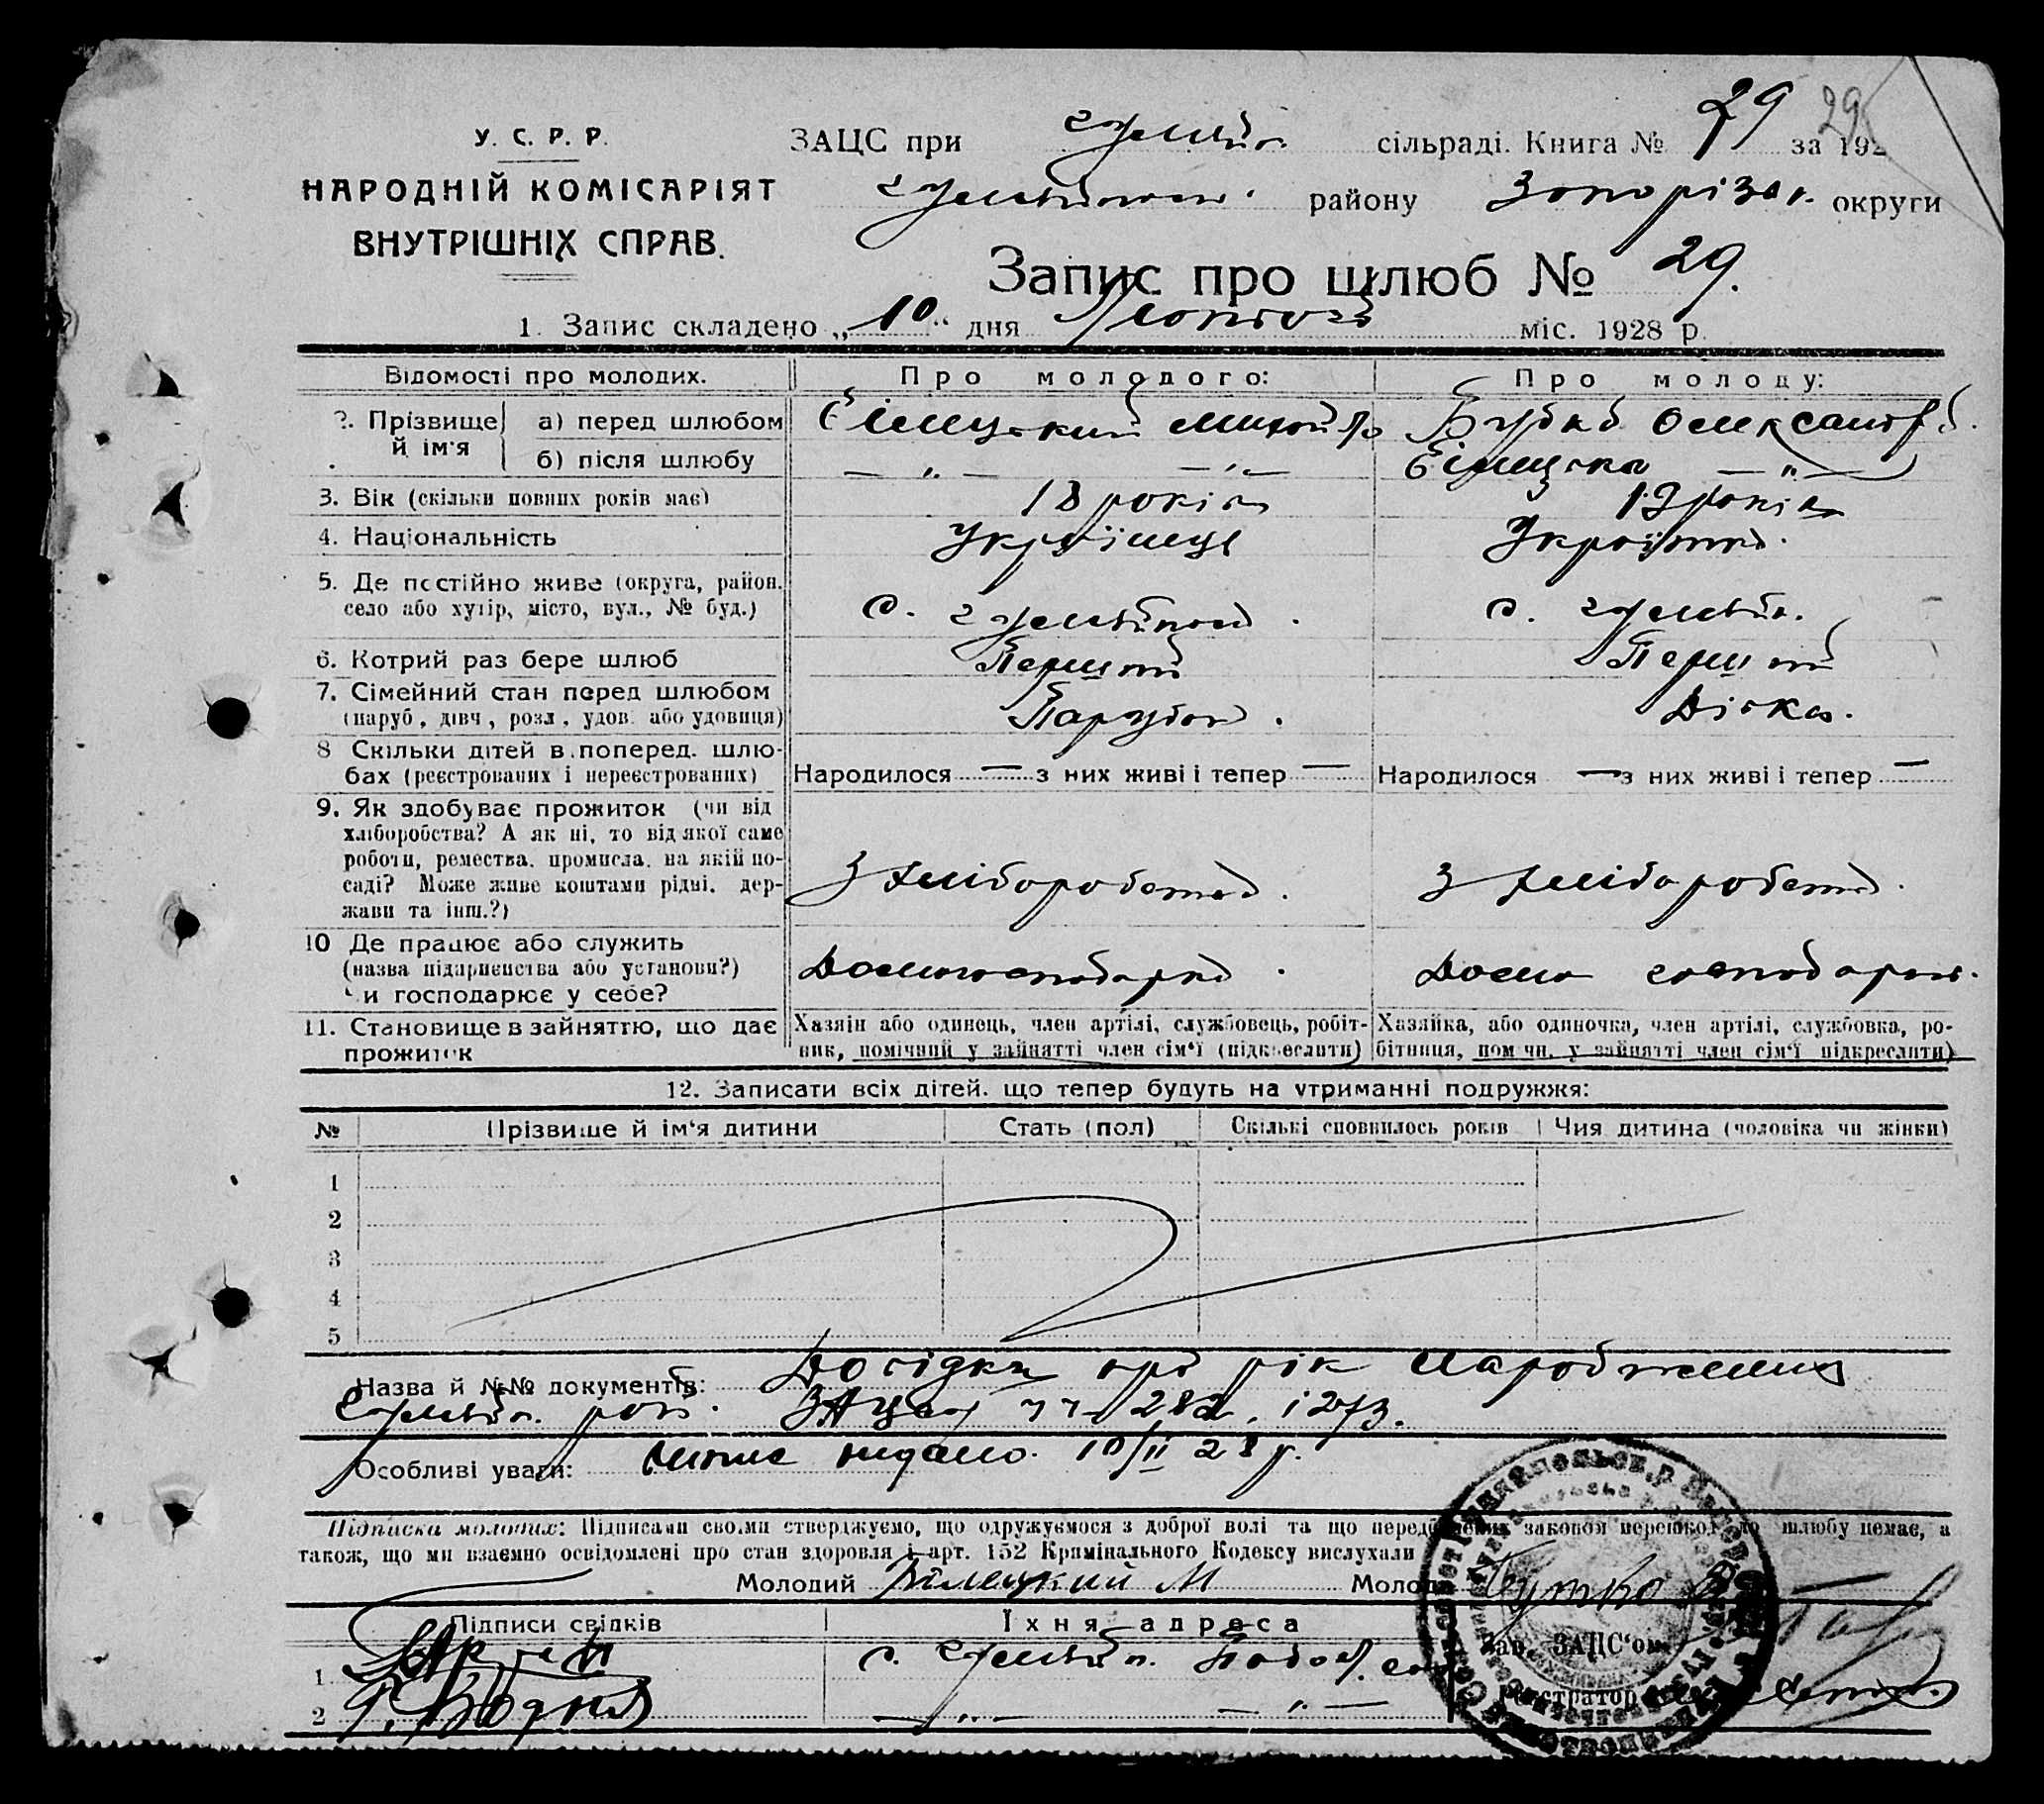 У. С. Р. Р.
НАРОДНІЙ КОМІСАРІЯТ
ВНУТРІШНІХ СПРАВ.
ЗАЦС при Гуляйп. сільраді. Книга № 29 за 192
29
району Запорізьк. округи
Запис про шлюб № 29.
1. Запис складено „10“ дня Лютого міс. 1928 р.
Відомості про молодих. Про молодого: Про молоду:
2. Прізвище й ім'я
а) перед шлюбом Білецький Михайло Бутко Олександр.
б) після шлюбу — „ — — „ — Білецька — „ —
3. Вік (скільки повних років має) 18 років 19 років
4. Національність Українець Українка.
5. Де постійно живе (округа, район, село або хутір, місто, вул., № буд.) с. Гуляйполе. с. Гуляйп.
6. Котрий раз бере шлюб Перший Перший
7. Сімейний стан перед шлюбом Парубок. Дівка.
(паруб., дівч., розл., удов. або удовиця)
8 Скільки дітей в поперед. шлюбах (реєстрованих і нереєстрованих) Народилося — з них живі і тепер — Народилося — з них живі і тепер —
9. Як здобуває прожиток (чи від
хліборобства? А як ні, то від якої саме
роботи, ремества, промисла, на якій по-
саді? Може живе коштами рідні, дер-
жави та інш.?) З хліборобства. З хліборобства.
10 Де працює або служить
(назва підприємства або установи?)
Чи господарює у себе? Домогосподарка. Домо господарка.
11. Становище в зайняттю, що дає
прожиток
Хазяїн або одинець, член артілі, службовець, робіт-
ник, помічний у зайнятті член сім'ї (підкреслити)
Хазяйка, або одиночка, член артілі, службовка, ро-
бітниця, пом чн. у зайнятті член сім'ї підкреслити)
12. Записати всіх дітей, що тепер будуть на утриманні подружжя:
№ Прізвище й ім'я дитини Стать (пол) Скількі сповнилось років Чия дитина (чоловіка чи жінки)
1
2
3
4
5
Назва й №№ документів: Довідки про рік народження
Гуляйп. рай. ЗАЦСу 282, 1273.
Особливі уваги: видано. 10/II 28 р.
Підписка молодих: Підписами своїми стверджуємо, що одружуємося з доброї волі та що передбачених законом перешкод до шлюбу немає, а
також, що ми взаємно освідомлені про стан здоровля і арт. 152 Кримінального Кодексу вислухали
Молодий Білецький М Молода Бутко
Підписи свідків Їхня адреса
1 с. Гуляйп.
2 — „ — — „ —
Зав. ЗАЦС'ом
Реєстратор